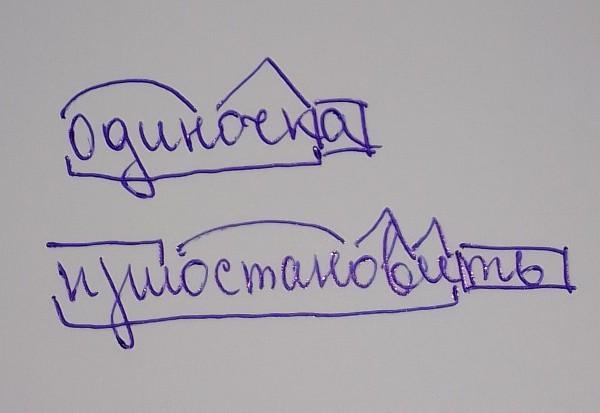 одиночка
приостановить